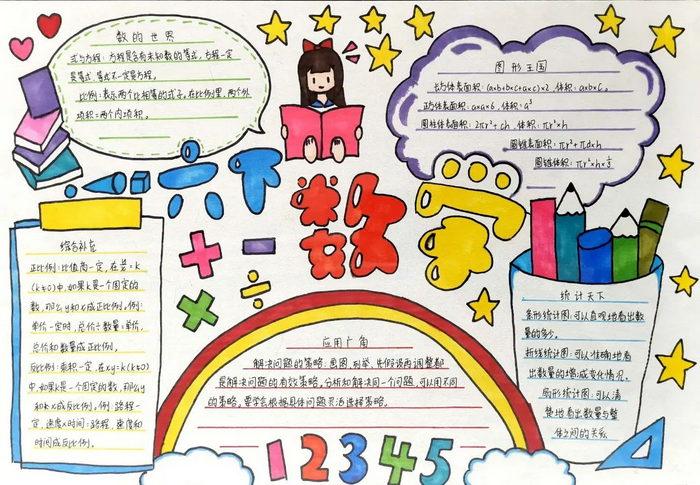 数的世界
式与方程:方程是含有未知数的等式,方程一定
是等式,等式不一定是方程。
比例:表示两个比相等的式子。在比例里,两个外
项积=两个内项积。
图形王国
长方体表面积:(a×b+b×c+a×c)×2,体积:a×b×c。
正方体表面积:a×a×6,体积:a³
圆柱体表面积:2πr²+ch,体积:πr²×h
圆锥表面积:πr²+πdxh
圆锥体积:πr²×h×1/3
六下
数学
综合补充
正比例:比值商一定,在 =k
(k≠0)中,如果k是一个固定的
数,那么y和x成正比例。例:
单价一定时,总价÷数量=单价,
总价和数量成正比例。
反比例:乘积一定,在xy=k(k≠0)
中,如果k是一个固定的数,那么y
和x成反比例。例:路程一
定,速度×时间=路程,速度和
时间成反比例。
应用广角
解决问题的策略:画图,列举,先假设再调整都
是解决问题的有效策略。分析和解决同一个问题,可以用不同
的策略。要学会根据具体问题灵活选择策略。
统计天下
条形统计图:可以直观地看出数
量的多少。
折线统计图:可以准确地看
出数量的增减变化情况。
扇形统计图:可以清
楚地看出数量与整
体之间的关系
12345